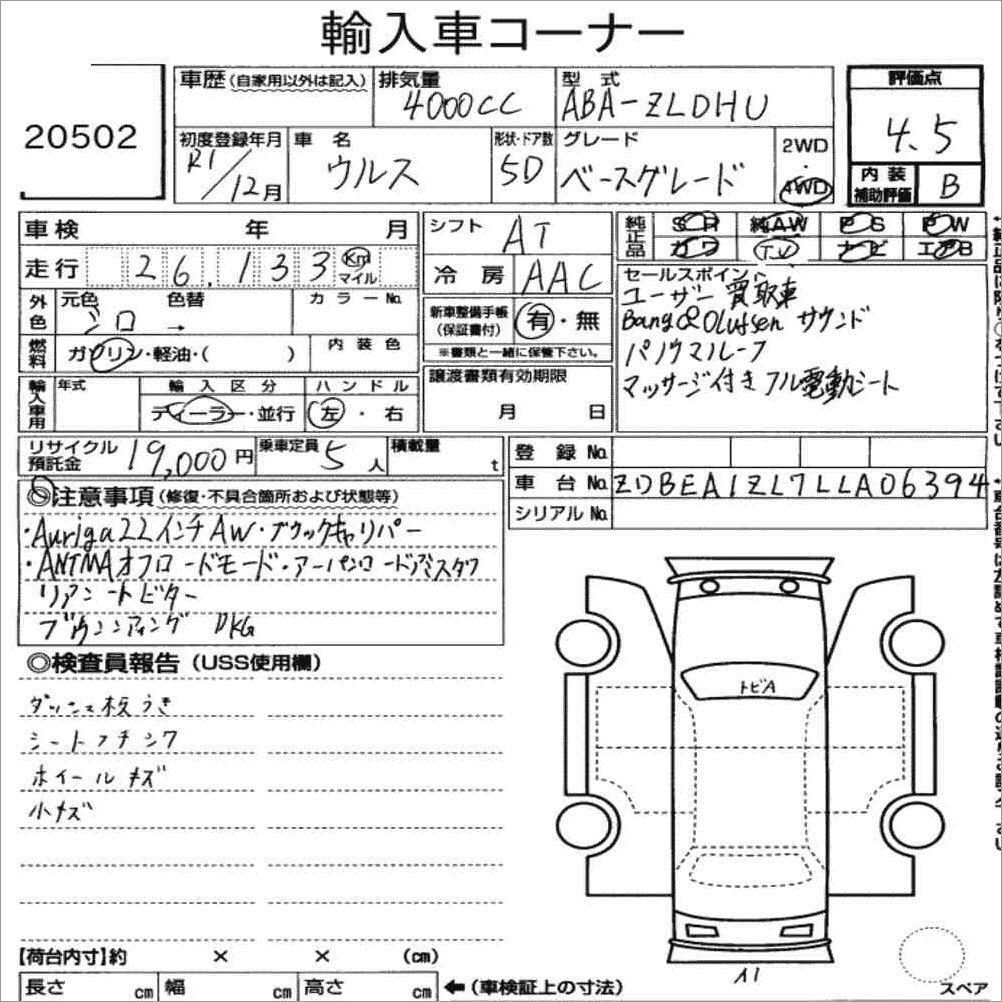 輸入車コーナー
20502
車歴 (自家用以外は記入)
排気量
4000CC
型 式
ABA-ZLDHU
評価点
4.5
初度登録年月
R1/12月
車 名
ウルス
形状・ドア数
5D
グレード
ベースグレード
2WD
・
AWD
内装補助評価
B
車検 年 月
走行 26,133 Km マイル
シフト AT
冷房 AAC
純正品
SH 純AW PS PW
カワ TV ナビ エアB
外色
元色 シロ
色替 →
カラーNo.
燃料
ガソリン・軽油・( )
内装色
新車整備手帳
(保証書付)
有・無
※書類と一緒に保管下さい。
セールスポイント
ユーザー買取車
Bang&Olufsen サウンド
パノラマルーフ
マッサージ付き フル電動シート
輸入車用
年式
輸入区分
ディーラー・並行
ハンドル
左・右
譲渡書類有効期限
月 日
リサイクル預託金 19,000円
乗車定員 5人
積載量 t
登録No.
車台No. ZDBEA1ZL7LLA06394
シリアルNo.
◎注意事項(修復・不具合箇所および状態等)
・Auriga22インチAW・ブラックキャリパー
・ANIMAオフロードモード・アーバンロードアシスタンス
リアシートヒーター
DKG
◎検査員報告(USS使用欄)
ダッシュ板うき
シート
ホイールキズ
小キズ
トビA
A1
【荷台内寸】約 × × (cm)
長さ cm 幅 cm 高さ cm
←(車検証上の寸法)
スペア